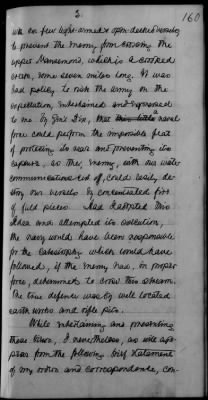 3.
160
with a few light-armed & open decked vessels
to prevent the enemy from crossing the
upper Nansemond, which is a crooked
creek, some seven miles long. It was
bad policy, to risk the army on the
expectation, entertained and expressed
to me by Genl Dix, that a naval
force could perform the impossible feat
of protecting its rear and preventing its
capture, as the enemy, with our water
communications cut off, could easily de-
stroy our vessels by concentrated fire
of field pieces. Had I adopted this
idea and attempted its execution,
the navy would have been responsible
for the catastrophe which would have
followed, if the enemy had, in proper
force, determined to cross this stream.
The true defence was by well located
earth works and rifle pits.
While entertaining and presenting
these views, I nevertheless, as will ap-
pear from the following brief statement
of my orders and correspondence, con-